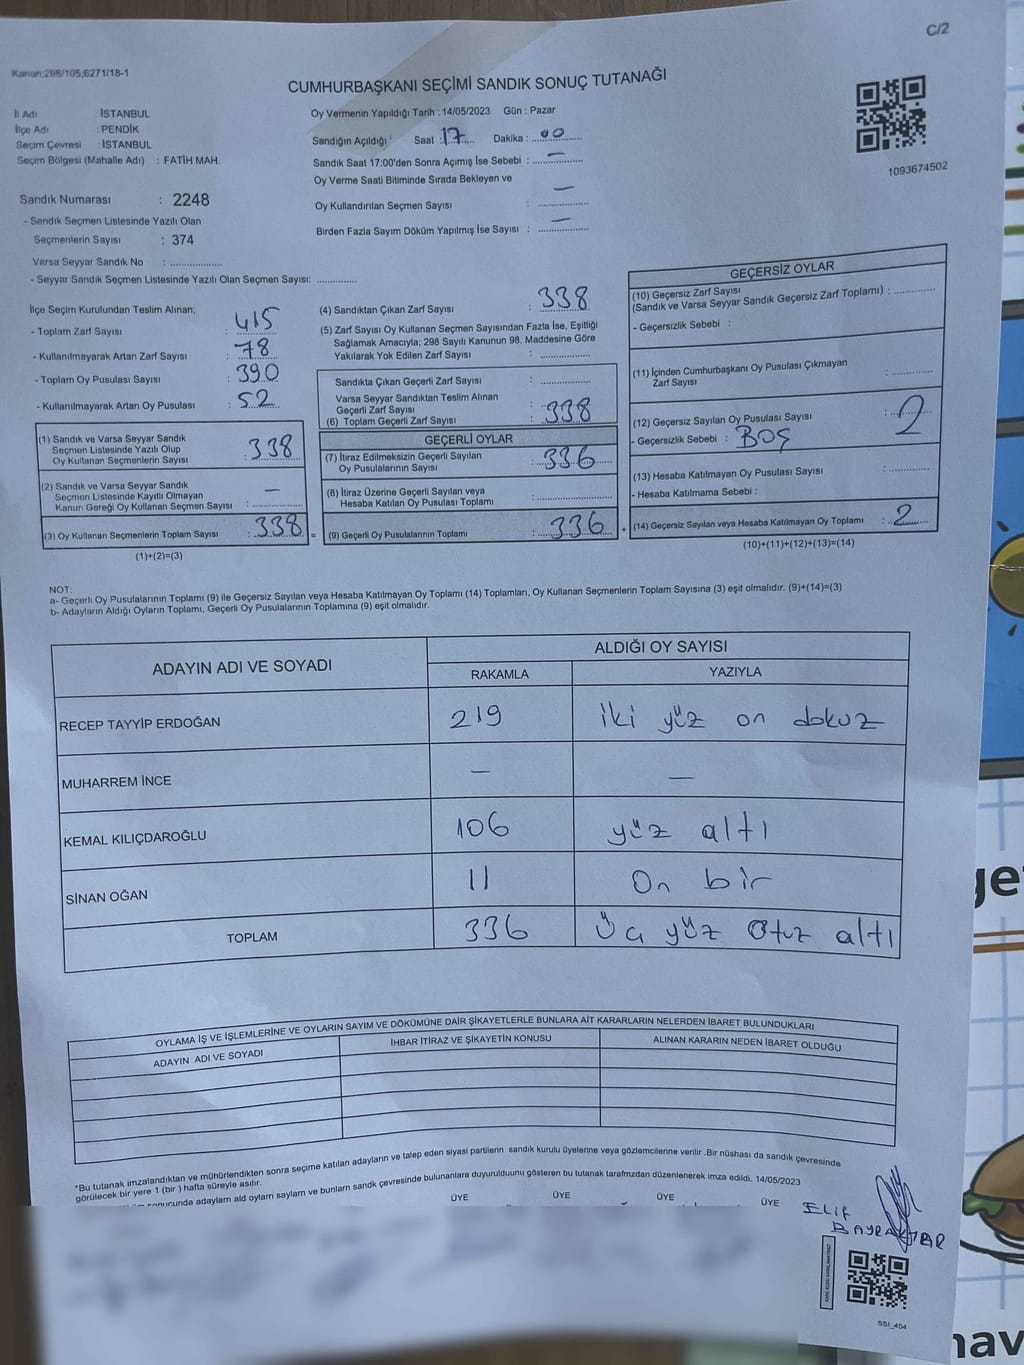 C/2
Kanun;298/105;6271/18-1
CUMHURBAŞKANI SEÇİMİ SANDIK SONUÇ TUTANAĞI
İl Adı : İSTANBUL
İlçe Adı : PENDİK
Seçim Çevresi : İSTANBUL
Seçim Bölgesi (Mahalle Adı) : FATİH MAH.
Oy Vermenin Yapıldığı Tarih : 14/05/2023 Gün : Pazar
Sandığın Açıldığı Saat : 17 Dakika : 00
Sandık Saat 17:00'den Sonra Açımış İse Sebebi : —
Oy Verme Saati Bitiminde Sırada Bekleyen ve
Oy Kullandırılan Seçmen Sayısı : —
Birden Fazla Sayım Döküm Yapılmış İse Sayısı : —
1093674502
Sandık Numarası : 2248
- Sandık Seçmen Listesinde Yazılı Olan
Seçmenlerin Sayısı : 374
Varsa Seyyar Sandık No : ..................
- Seyyar Sandık Seçmen Listesinde Yazılı Olan Seçmen Sayısı: ..............
İlçe Seçim Kurulundan Teslim Alınan;
- Toplam Zarf Sayısı : 415
- Kullanılmayarak Artan Zarf Sayısı : 78
- Toplam Oy Pusulası Sayısı : 390
- Kullanılmayarak Artan Oy Pusulası : 52
(1) Sandık ve Varsa Seyyar Sandık
Seçmen Listesinde Yazılı Olup
Oy Kullanan Seçmenlerin Sayısı : 338
(2) Sandık ve Varsa Seyyar Sandık
Seçmen Listesinde Kayıtlı Olmayan
Kanun Gereği Oy Kullanan Seçmen Sayısı : —
(3) Oy Kullanan Seçmenlerin Toplam Sayısı : 338 =
(1)+(2)=(3)
(4) Sandıktan Çıkan Zarf Sayısı : 338
(5) Zarf Sayısı Oy Kullanan Seçmen Sayısından Fazla İse, Eşitliği
Sağlamak Amacıyla; 298 Sayılı Kanunun 98. Maddesine Göre
Yakılarak Yok Edilen Zarf Sayısı : ..............
Sandıkta Çıkan Geçerli Zarf Sayısı : ..............
Varsa Seyyar Sandıktan Teslim Alınan
Geçerli Zarf Sayısı
(6) Toplam Geçerli Zarf Sayısı : 338
GEÇERLİ OYLAR
(7) İtiraz Edilmeksizin Geçerli Sayılan
Oy Pusulalarının Sayısı : 336
(8) İtiraz Üzerine Geçerli Sayılan veya
Hesaba Katılan Oy Pusulası Toplamı : ..............
(9) Geçerli Oy Pusulalarının Toplamı : 336 +
GEÇERSİZ OYLAR
(10) Geçersiz Zarf Sayısı
(Sandık ve Varsa Seyyar Sandık Geçersiz Zarf Toplamı) : ............
- Geçersizlik Sebebi :
(11) İçinden Cumhurbaşkanı Oy Pusulası Çıkmayan
Zarf Sayısı : ............
(12) Geçersiz Sayılan Oy Pusulası Sayısı : 2
- Geçersizlik Sebebi : BOŞ
(13) Hesaba Katılmayan Oy Pusulası Sayısı : ............
- Hesaba Katılmama Sebebi :
(14) Geçersiz Sayılan veya Hesaba Katılmayan Oy Toplamı : 2
(10)+(11)+(12)+(13)=(14)
NOT:
a- Geçerli Oy Pusulalarının Toplamı (9) ile Geçersiz Sayılan veya Hesaba Katılmayan Oy Toplamı (14) Toplamları, Oy Kullanan Seçmenlerin Toplam Sayısına (3) eşit olmalıdır. (9)+(14)=(3)
b- Adayların Aldığı Oyların Toplamı, Geçerli Oy Pusulalarının Toplamına (9) eşit olmalıdır.
ADAYIN ADI VE SOYADI ALDIĞI OY SAYISI
RAKAMLA YAZIYLA
RECEP TAYYİP ERDOĞAN 219 iki yüz on dokuz
MUHARREM İNCE — —
KEMAL KILIÇDAROĞLU 106 yüz altı
SİNAN OĞAN 11 On bir
TOPLAM 336 Üç yüz Otuz altı
OYLAMA İŞ VE İŞLEMLERİNE VE OYLARIN SAYIM VE DÖKÜMÜNE DAİR ŞİKAYETLERLE BUNLARA AİT KARARLARIN NELERDEN İBARET BULUNDUKLARI
ADAYIN ADI VE SOYADI İHBAR İTİRAZ VE ŞİKAYETİN KONUSU ALINAN KARARIN NEDEN İBARET OLDUĞU
*Bu tutanak imzalandıktan ve mühürlendikten sonra seçime katılan adayların ve talep eden siyasi partilerin sandık kurulu üyelerine veya gözlemcilerine verilir .Bir nüshası da sandık çevresinde
görülecek bir yere 1 (bir ) hafta süreyle asılır.
sonucunda adaylam ald oylam saylarn ve bunlarn sandk çevresinde bulunanlara duyurulduunu gösteren bu tutanak tarafmzdan düzenlenerek imza edildi. 14/05/2023
ÜYE ÜYE ÜYE ÜYE
ELİF
BAYRAKTAR
SSI_404
ge
nav